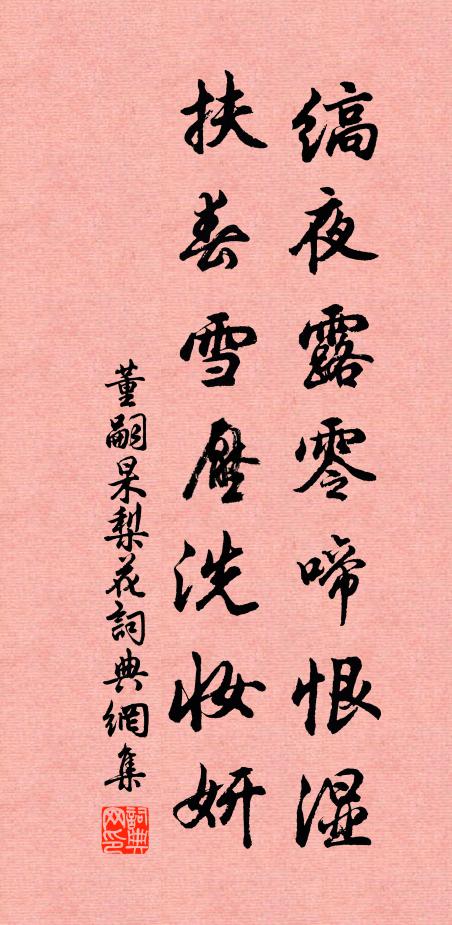 缟夜露零啼恨湿
扶春雪压洗妆妍
董嗣杲梨花詞典網集
詞典网印